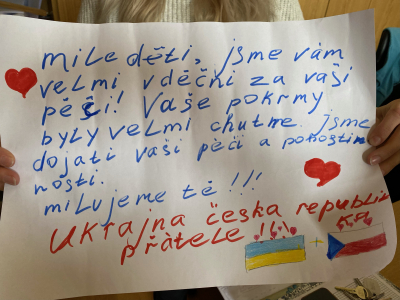 mile děti, jsme vám
velmi vděčni za vaši
péči! Vaše pokrmy
byly velmi chutme. jsme
dojati vaši péči a pohostin
nosti.
milujeme tě !!!
Ukrajna česka republi
ka
přàtele !!!